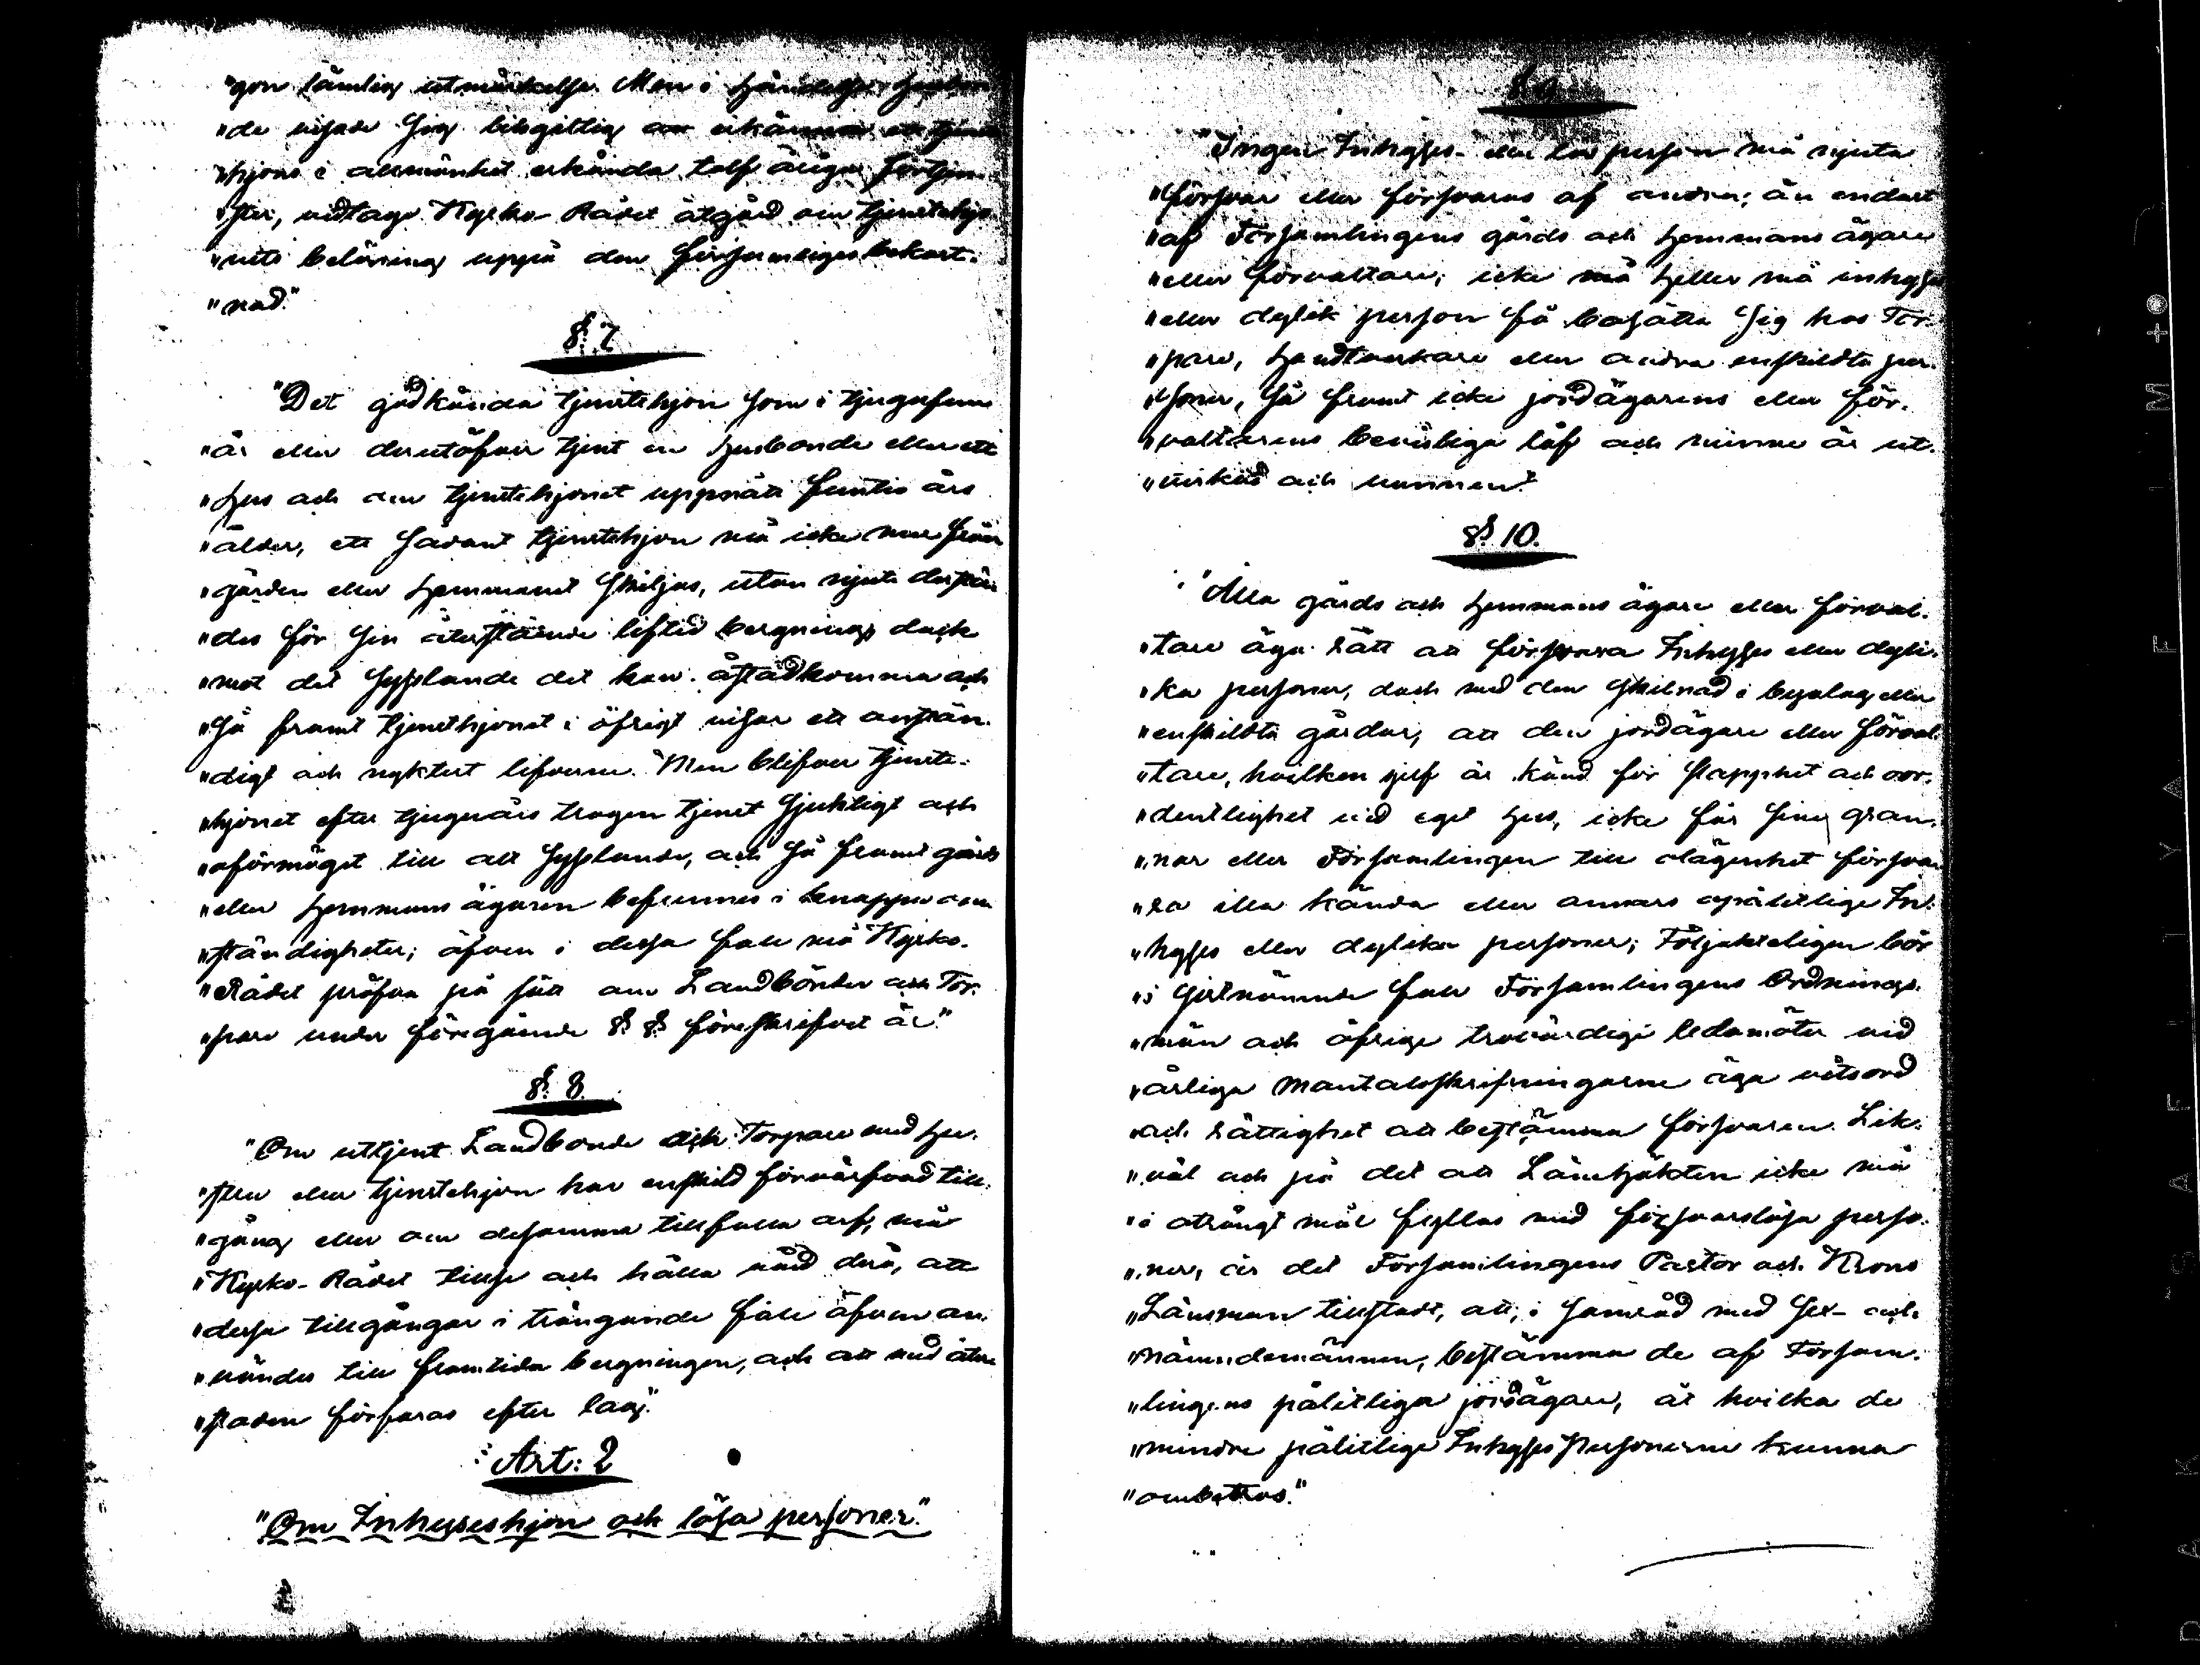 "gon lämlig utmärkelse. Men i händelse husbon
"de visade sig liksgiltig att erkänna ett tjenste
"hjons i allmänhet erkända tolf åriga förtjen-
"ster, vidtage Kyrko-Rådet åtgärd om tjenstehjo-
"nets belöning uppå den församliges bekost-
"nad."
§. 7
"Det godkända tjenstehjon som i tjugufem
"år eller derutöfver tjent en husbonde eller ett
"hus och den tjenstehjonet uppnått femtio års
"ålder, ett sådant tjenstehjon må icke mer från
"gården eller hemmanet skiljas, utan njute derstä-
"des för sin återstående liftid bergning, dock
"mot det sysslande det kan åstadkomma och
"så framt tjensthjonet i öfrigt visar ett anstän-
"digt och nyktert lifverne. Men blifver tjenste-
"hjonet efter tjuguårs trogen tjenst sjukligt och
"oförmöget till allt sysslande, och så framt gårds
"eller hemmans ägaren befinnes i knappa om-
"ständigheter; äfven i dessa fall må Kyrko-
"Rådet pröfva på sätt om Landbönder och Tor-
"pare under föregående §. §. föreskrifvet är."
§. 8.
"Om uttjent Landbonde och Torpare med hu-
"stru eller tjenstehjon har enskild förvärfvad till-
"gång eller om desamma tillfalla arf, må
"Kyrko-Rådet tillse och hålla vård derå, att
"dessa tillgångar i trängande fall äfven an-
"vändes till framtida bergningen, och att med åter-
"stoden förfaras efter lag."
Art: 2
"Om Inhysseshjon och lösa personer."
§ 9.
"Ingen Inhyses- eller lös person må njuta
"försvar eller försvaras af andra; än endast
"af Församlingens gårds och hemmans ägare
"eller förvaltare; icke må heller må inhyses
"eller dylik person få bosätta sig hos Tor-
"pare, handtverkare eller andra enskildta per-
"soner, så framt icke jordägarens eller för-
"valtarens benäkliga låf och minne är ut-
"verkad och vunnen."
§. 10.
"Alla gårds och hemmans ägare eller förval-
"tare äga rätt att försvara Inhyses eller dyli-
"ka personer, dock med den skilnad i byalag eller
"enskildta gårdar, att den jordägare eller förval-
"tare, hvilken sjelf är känd för slapphet och oor-
"dentlighet vid eget hus, icke får sina gran-
"nar eller Församlingen till olägenhet försva-
"ra illa kända eller annars opålitlige In-
"hyses eller dylika personer; Följakteligen bör
"i sistnämnde fall Församlingens Ordnings-
"män och öfrige trovärdige ledamöter vid
"årliga Mantalsskrifningarne äga vitsord
"och rättighet att bestämma försvaren. Lik-
"väl och på det att Länehjäkten icke må
"i oträngt mål fyllas med försvarslösa perso-
"ner, är det Församlingens Pastor och Krono
"Länsman tillstadt, att, i samråd med sex- och
"nämndemännen, bestämma de af Försam-
"lingens pålitliga jordägare, åt hvilka de
"mindre pålitlige Inhyses Personerne kunna
"ombetros."